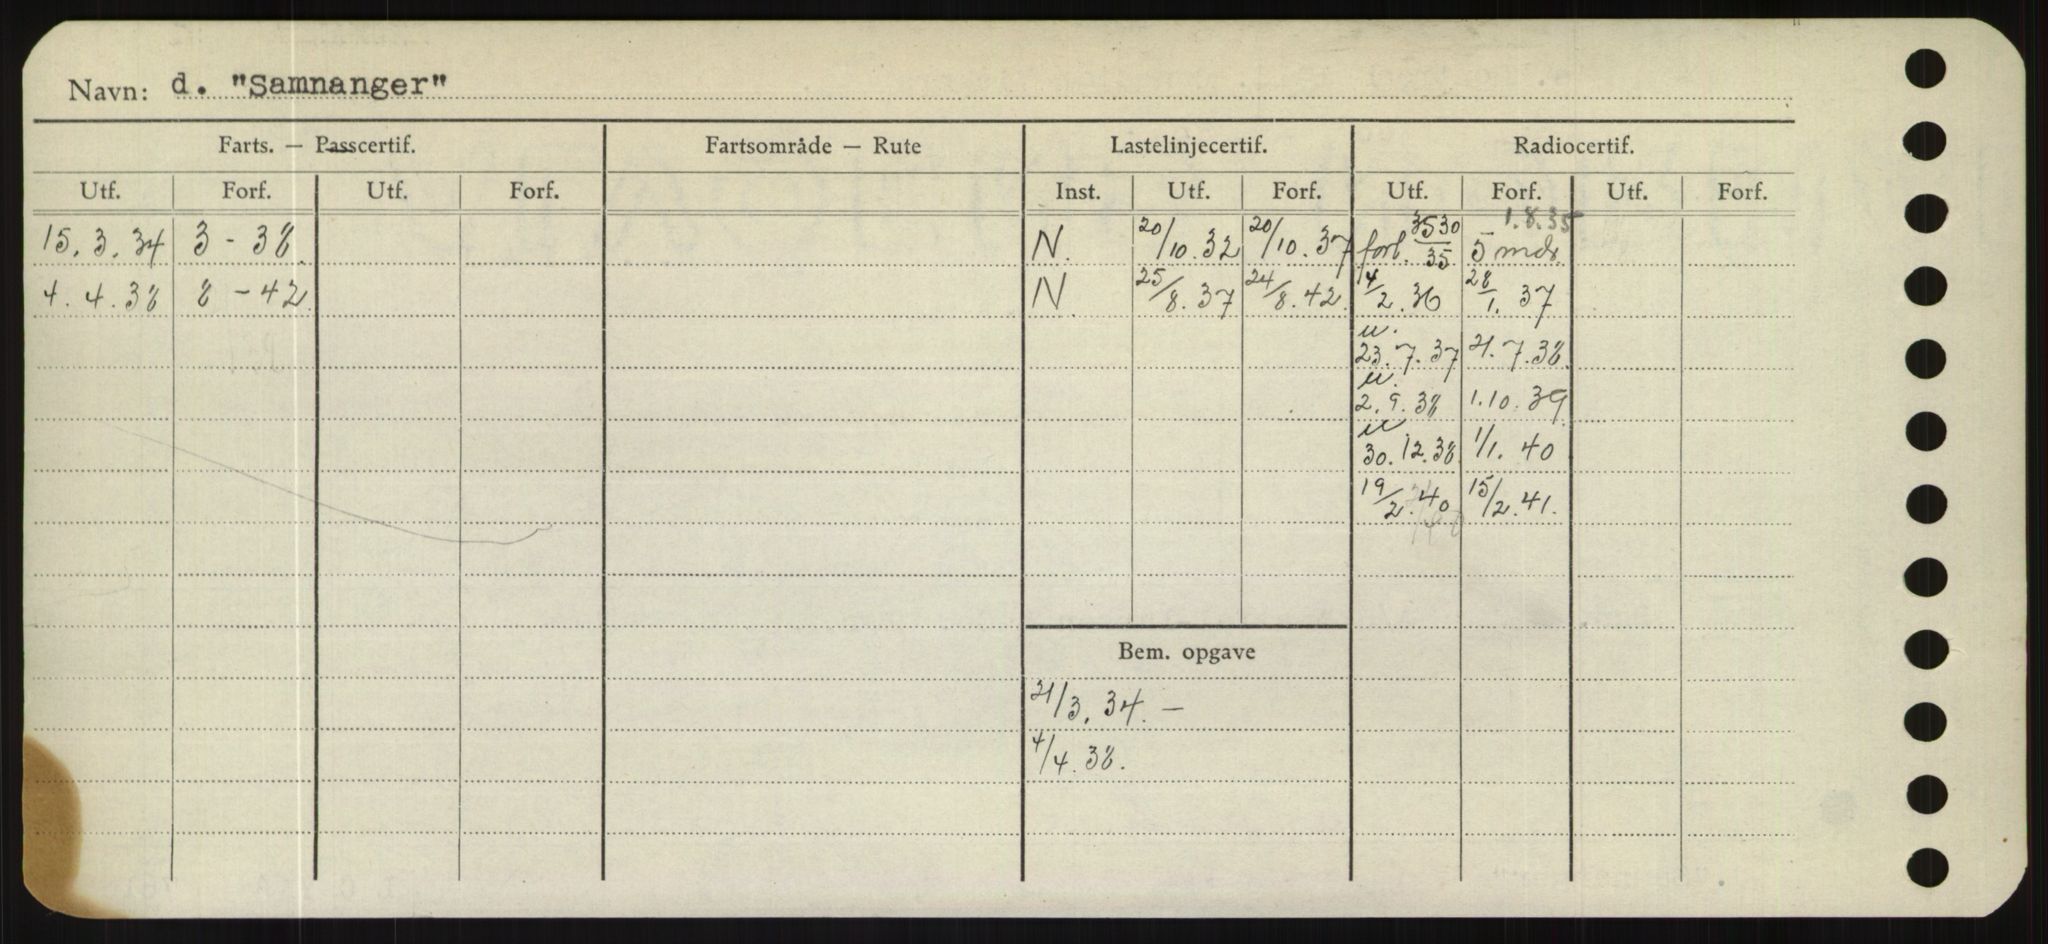 Navn: d. "Samnanger"
Farts. — Passcertif. Fartsområde — Rute Lastelinjecertif. Radiocertif.
Utf. Forf. Utf. Forf. Inst. Utf. Forf. Utf. Forf. Utf. Forf.
1.8.35
15.3.34 3 - 38. N. 20/10.32 20/10.37 forl. 3530/35 5 mdr.
4.4.38 8 - 42. N 25/8.37 24/8.42. 14/2.36 28/1.37
u.
23.7.37 21.7.38.
u.
2.9.38 1.10.39
u
30.12.38. 1/1.40
19/2.40 15/2.41.
Bem. opgave
21/3.34. —
4/4.38.